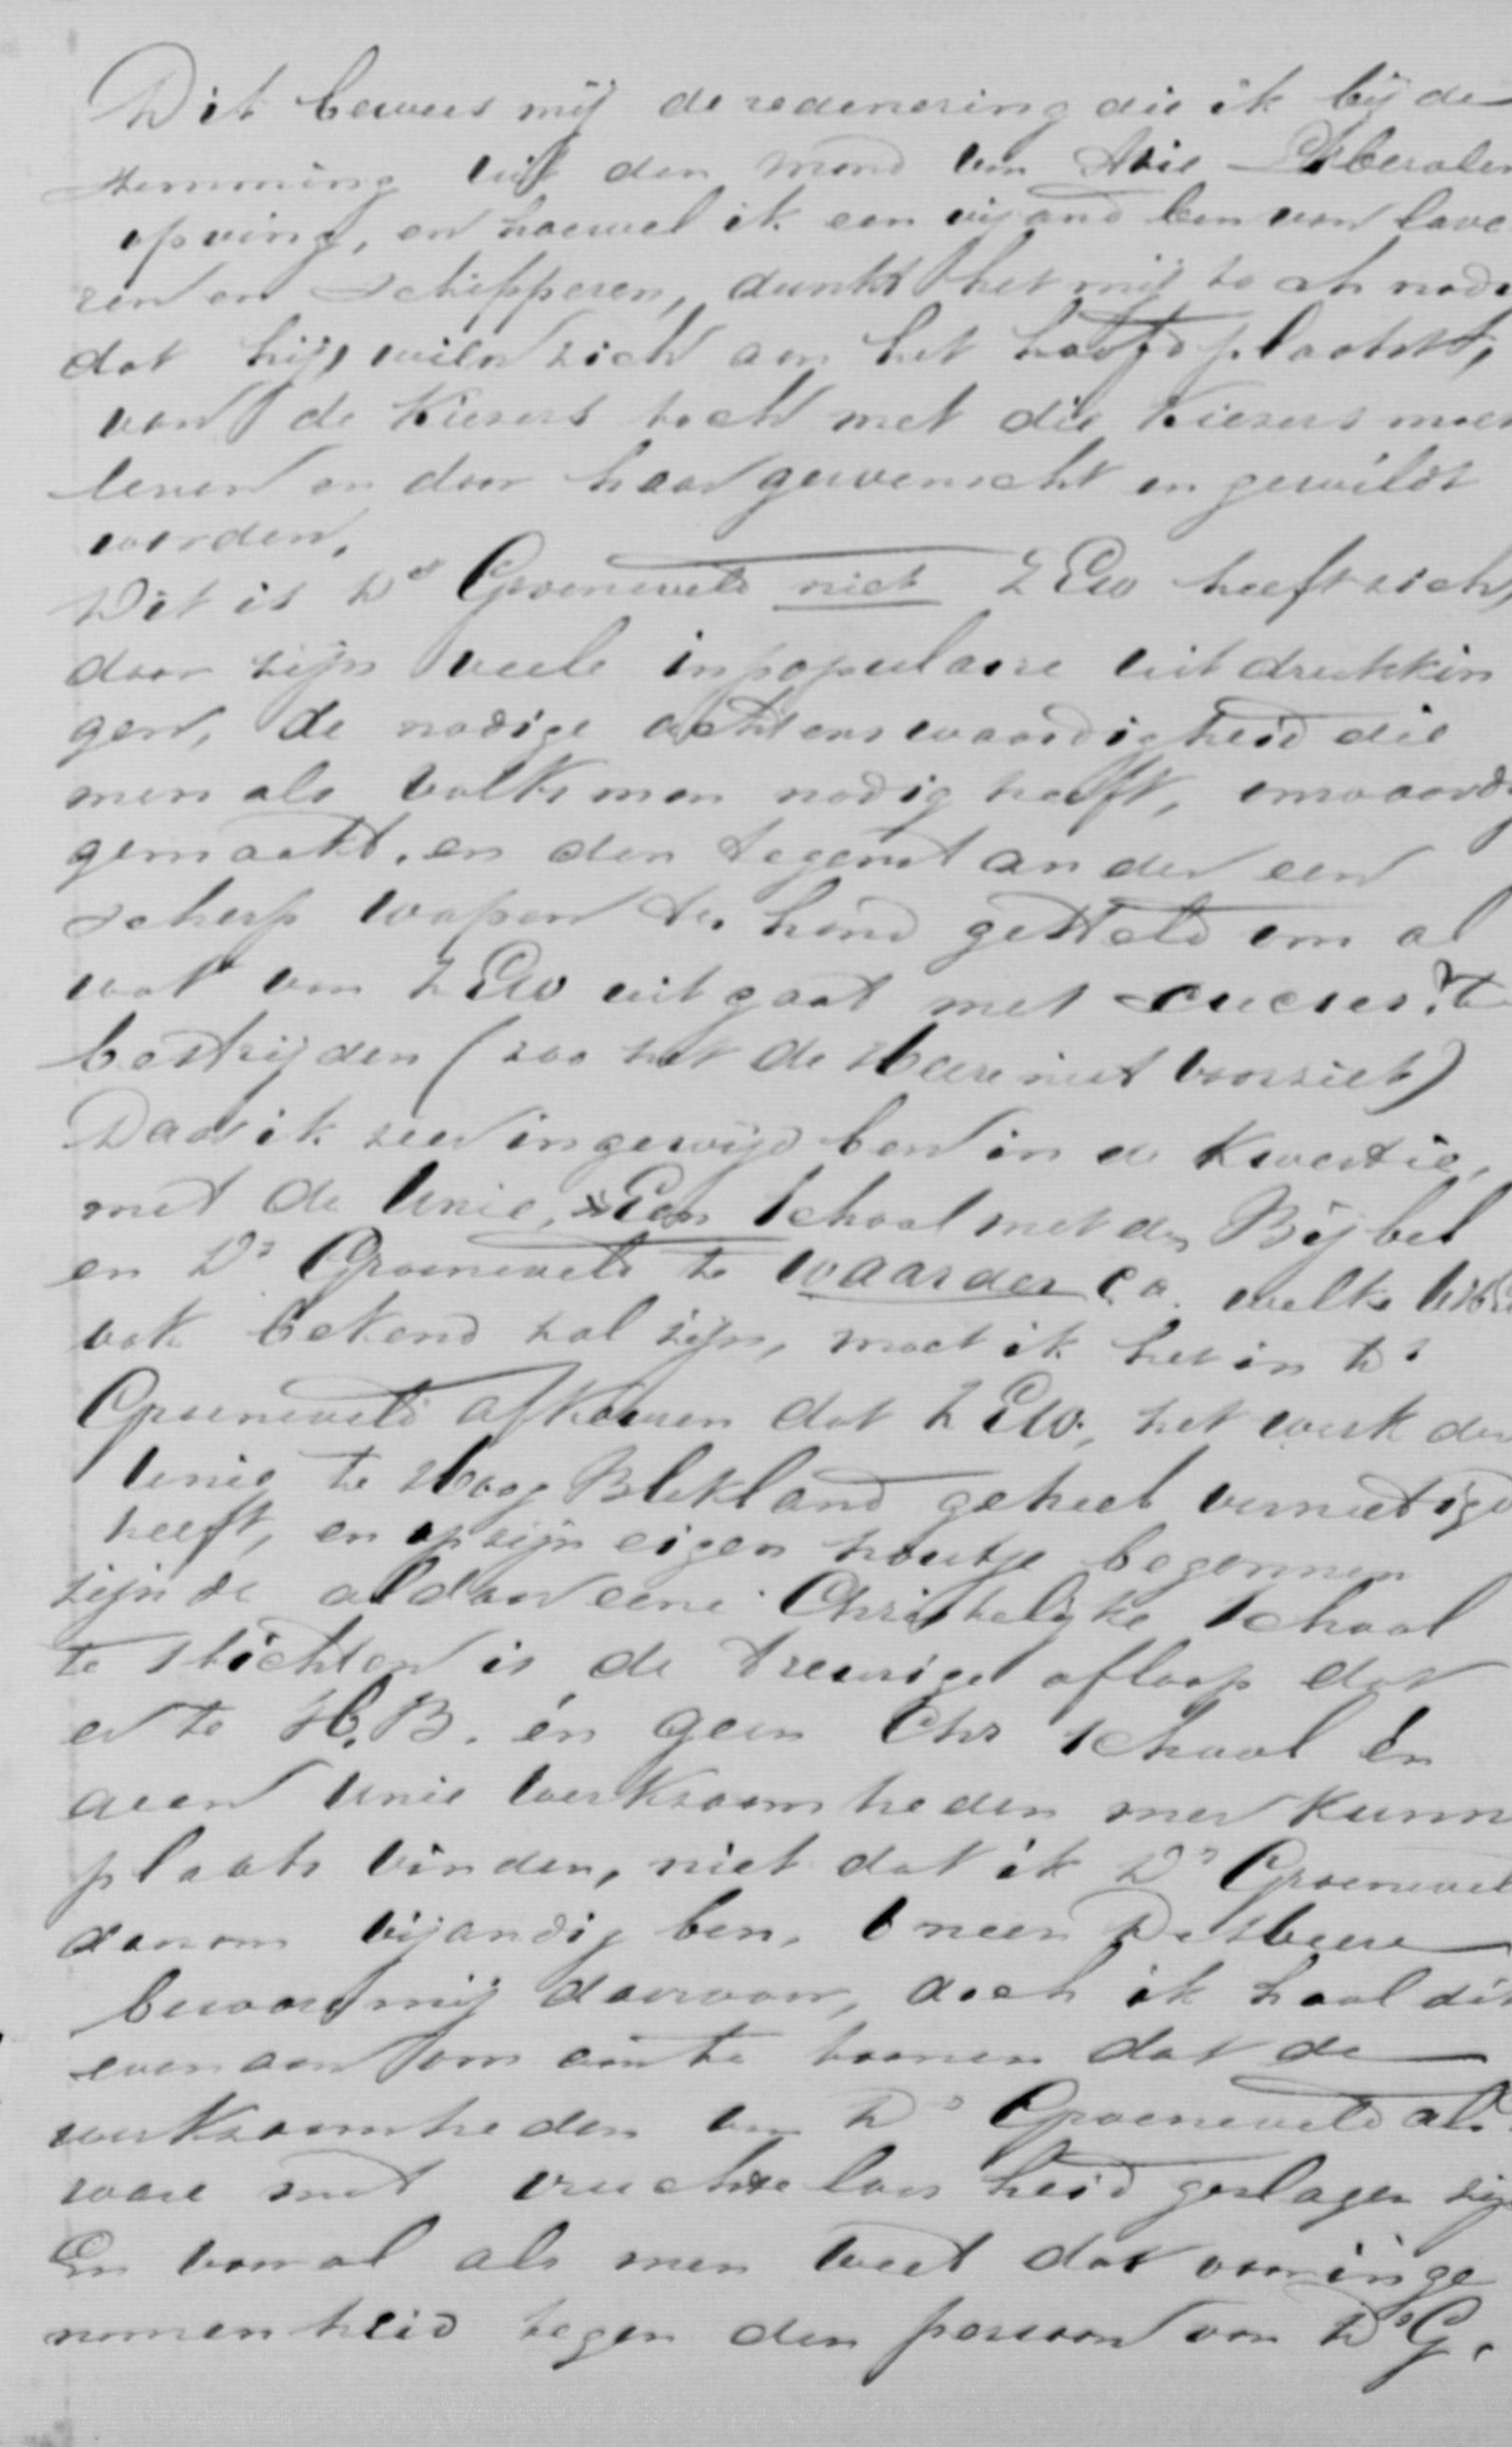 Dit bewees mij de redenering die ik bij de
stemming uit den mond van drie Liberalen
opving, en hoewel ik een vijand ben van lave
ren en schipperen, dunkt het mij toch nodi
dat hij, wien zich aan het hoofd plaatst,
van de Kiesers toch met die Kiesers moet
leven en door haar gewenscht en gewildt
worden.
Dit is Ds Groeneveld niet ZEw heeft zich,
door zijn veele inpopulaire uitdrukkin
gen, de nodige achtenswaardigheid die
men als volksman nodig heeft, onwaardi
gemaakt. en den tegenstander een
scherp wapen ter hand gesteld om al
wat van ZEw uitgaat met succes? te
bestrijden (zoo het de Heere niet voorziet)
Daar ik zeer ingewijd ben in de Kwestie,
met de Unie, Een School met den Bijbel
en Ds Groeneveld te Waarder c.a. welke
ook bekend zal zijn, moet ik het in Ds
Groeneveld afkeuren dat ZEw. het werk der
Unie te Hoog Blokland geheel vernietigd
heeft, en op zijn eigen houtje begonnen
zijnde aldaar eene Christelijke School
te stichten is de treurige afloop dat
er te H.B. én geen Chr School én
geen Unie werkzaamheden meer kunn
plaats vinden, niet dat ik Ds Groenevel
daarom vijandig ben, O neen De Heere
bewaar mij daarvoor, doch ik haal dit
even aan om aan te toonen dat de
werkzaamheden van Ds Groeneveld als
ware met vruchteloosheid geslagen zij
En vooral als men weet dat vooringe
nomenheid tegen den persoon van Ds G.